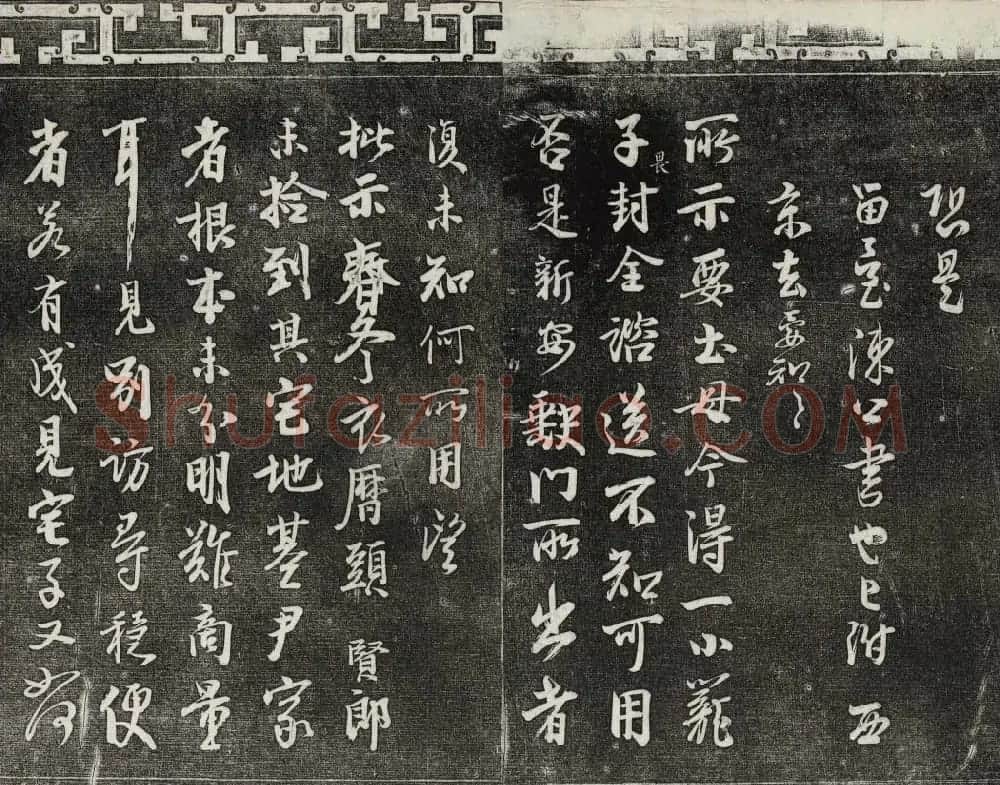 恐是
留臺陳公書也已附西
京去要知々
所示要土母今得一小籠
子封全諮送不知可用
畏
否是新安缺門所出者
復未知何所用望
批示春冬衣曆頭賢郎
未拾到其宅地基尹家
者根本未分明難商量
耳見別訪尋穩便
者若有成見宅子又如何
Shufaziliao.COM